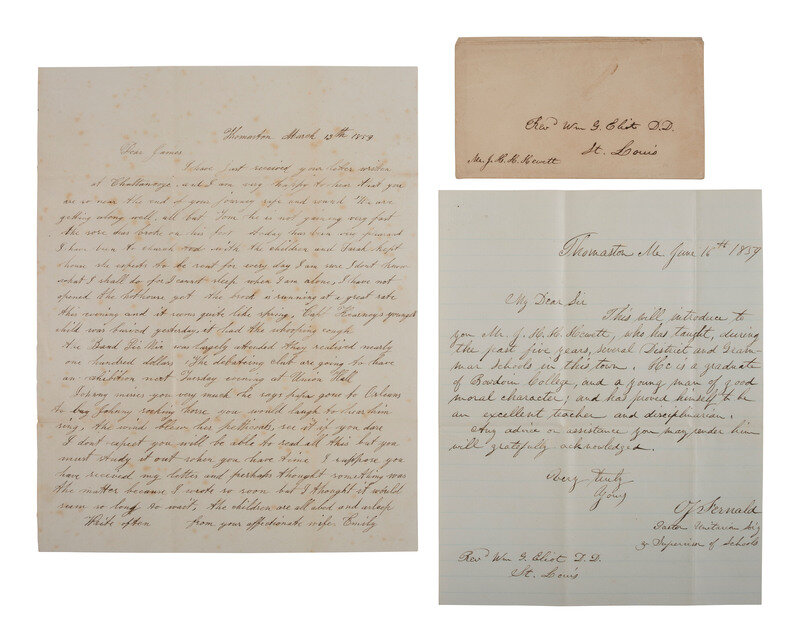 Thomaston March 13th 1859
Dear James
I have just received your letter written
at Chattanooga, and I am very happy to hear that you
are so near the end of your journey safe and sound We are
getting along well, all but Tom he is not gaining very fast
the sore has broke on his foot to day has been very pleasant
I have been to church with the children and Sarah kept
house she expects to be sent for every day I am sure I dont know
what I shall do for I cannot sleep when I am alone, I have not
opened the hothouse yet the brook is running at a great rate
this evening and it seems quite like spring, Capt youngest
child was buried yesterday it had the whooping cough
the Band was largely attended they received nearly
one hundred dollars The debating club are going to have
an exhibition next Tuesday evening at Union Hall
Johnny misses you very much he says papa gone to Orleans
to buy Johnny rocking horse you would laugh to hear him
sing, the wind blew her petticoats, see it if you dare
I dont expect you will be able to read all this but you
must study it out when you have time I suppose you
have received my letter and perhaps thought something was
the matter because I wrote so soon but I thought it would
seem so long to wait, the children are all abed and asleep
Write often from your affectionate wife Emily
Rev Wm G. Eliot D.D.
St. Louis
Mr. J. H. H. Hewett
Thomaston Me June 16th 1859
My Dear Sir
This will introduce to
you Mr. J. H. H. Hewett, who has taught, during
the past five years, several District and Gram-
mar Schools in this town. He is a graduate
of Bowdoin College, and a young man of good
moral character; and has proved himself to be
an excellent teacher and disciplinarian.
Any advice or assistance you may render him
will gratefully acknowledged.
Very truly
Yours
Fernald
Pastor Unitarian Soc'y
& Supervisor of Schools
Rev Wm G. Eliot D.D.
St. Louis